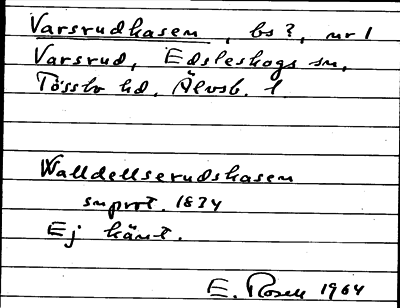 Varsrudkasen, bs?, nr 1
Varsrud, Edsleskogs sn,
Tössbo hd, Älvsb. l.
Walldellserudskasen
snprot. 1874
Ej känt.
E. Rosell 1964